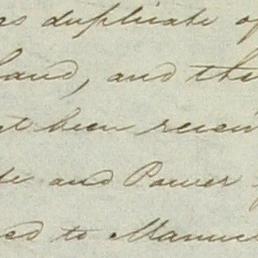 duplicate of
hand, and the
not been recei
and Power
ed to Manue